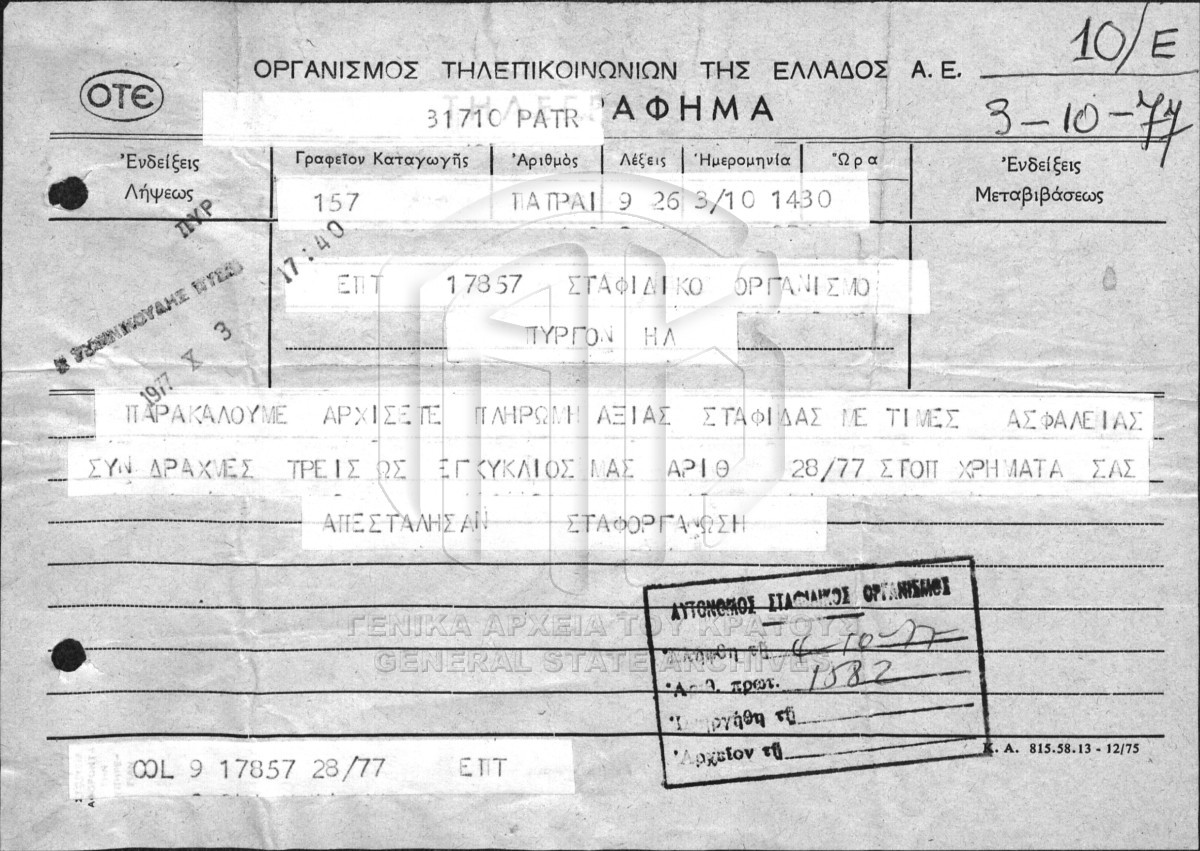 10/Ε
ΟΤΕ
ΟΡΓΑΝΙΣΜΟΣ ΤΗΛΕΠΙΚΟΙΝΩΝΙΩΝ ΤΗΣ ΕΛΛΑΔΟΣ Α. Ε.
ΤΗΛΕΓΡΑΦΗΜΑ
31710 PATR
3-10-77
Ἐνδείξεις Λήψεως
Γραφεῖον Καταγωγῆς Ἀριθμὸς Λέξεις Ἡμερομηνία Ὥρα
Ἐνδείξεις Μεταβιβάσεως
157 ΠΑΤΡΑΙ 9 26 3/10 1430
ΠΥΡ
17:40
1977 X 3
ΕΠΤ 17857 ΣΤΑΦΙΔΙΚΟ ΟΡΓΑΝΙΣΜΟ
ΠΥΡΓΟΝ ΗΛ
ΠΑΡΑΚΑΛΟΥΜΕ ΑΡΧΙΣΕΤΕ ΠΛΗΡΩΜΗ ΑΞΙΑΣ ΣΤΑΦΙΔΑΣ ΜΕ ΤΙΜΕΣ ΑΣΦΑΛΕΙΑΣ
ΣΥΝ ΔΡΑΧΜΕΣ ΤΡΕΙΣ ΩΣ ΕΓΚΥΚΛΙΟΣ ΜΑΣ ΑΡΙΘ 28/77 ΣΤΟΠ ΧΡΗΜΑΤΑ ΣΑΣ
ΑΠΕΣΤΑΛΗΣΑΝ ΣΤΑΦΟΡΓΑΝΩΣΗ
ΑΥΤΟΝΟΜΟΣ ΣΤΑΦΙΔΙΚΟΣ ΟΡΓΑΝΙΣΜΟΣ
ΓΕΝΙΚΑ ΑΡΧΕΙΑ ΤΟΥ ΚΡΑΤΟΥΣ
Ἐλήφθη τῇ 4-10-77
GENERAL STATE ARCHIVES
Ἀριθ. πρωτ. 1882
Ἐνηργήθη τῇ
Ἀρχεῖον τῇ
Κ. Α. 815.58.13 - 12/75
COL 9 17857 28/77 ΕΠΤ